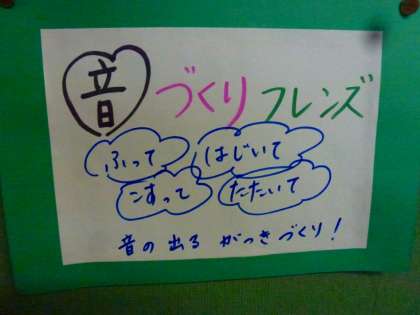 音づくりフレンズ
ふって はじいて
こすって たたいて
音の出る がっきづくり!